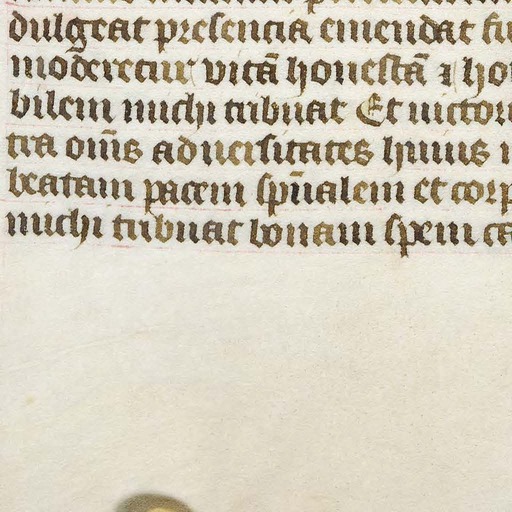 dulgeat presencia emendat fu
moderetur vitā honestā ⁊ ho
bilem michi tribuat Et uictori
tra om̄s aduersitates huius
beatam pacem sp̄ualem et corp
michi tribuat bonam spem ca